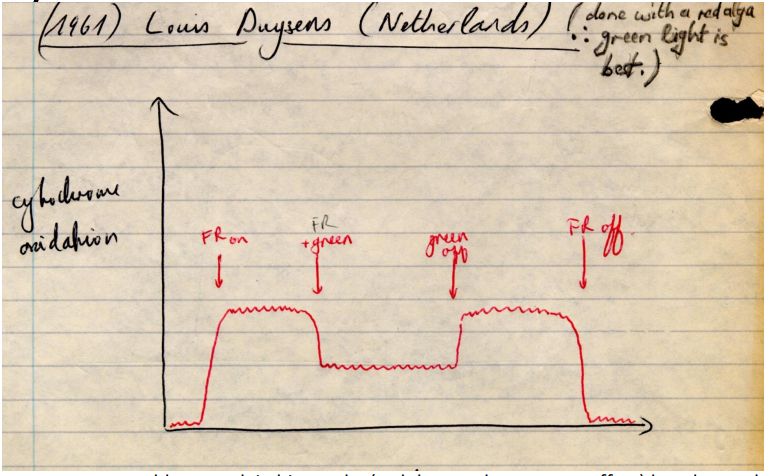 (1961) Louis Duysens (Netherlands)
(done with a red alga
∴ green light is
best.)
cytochrome
oxidation
FR on
FR
+green
green
off
FR off